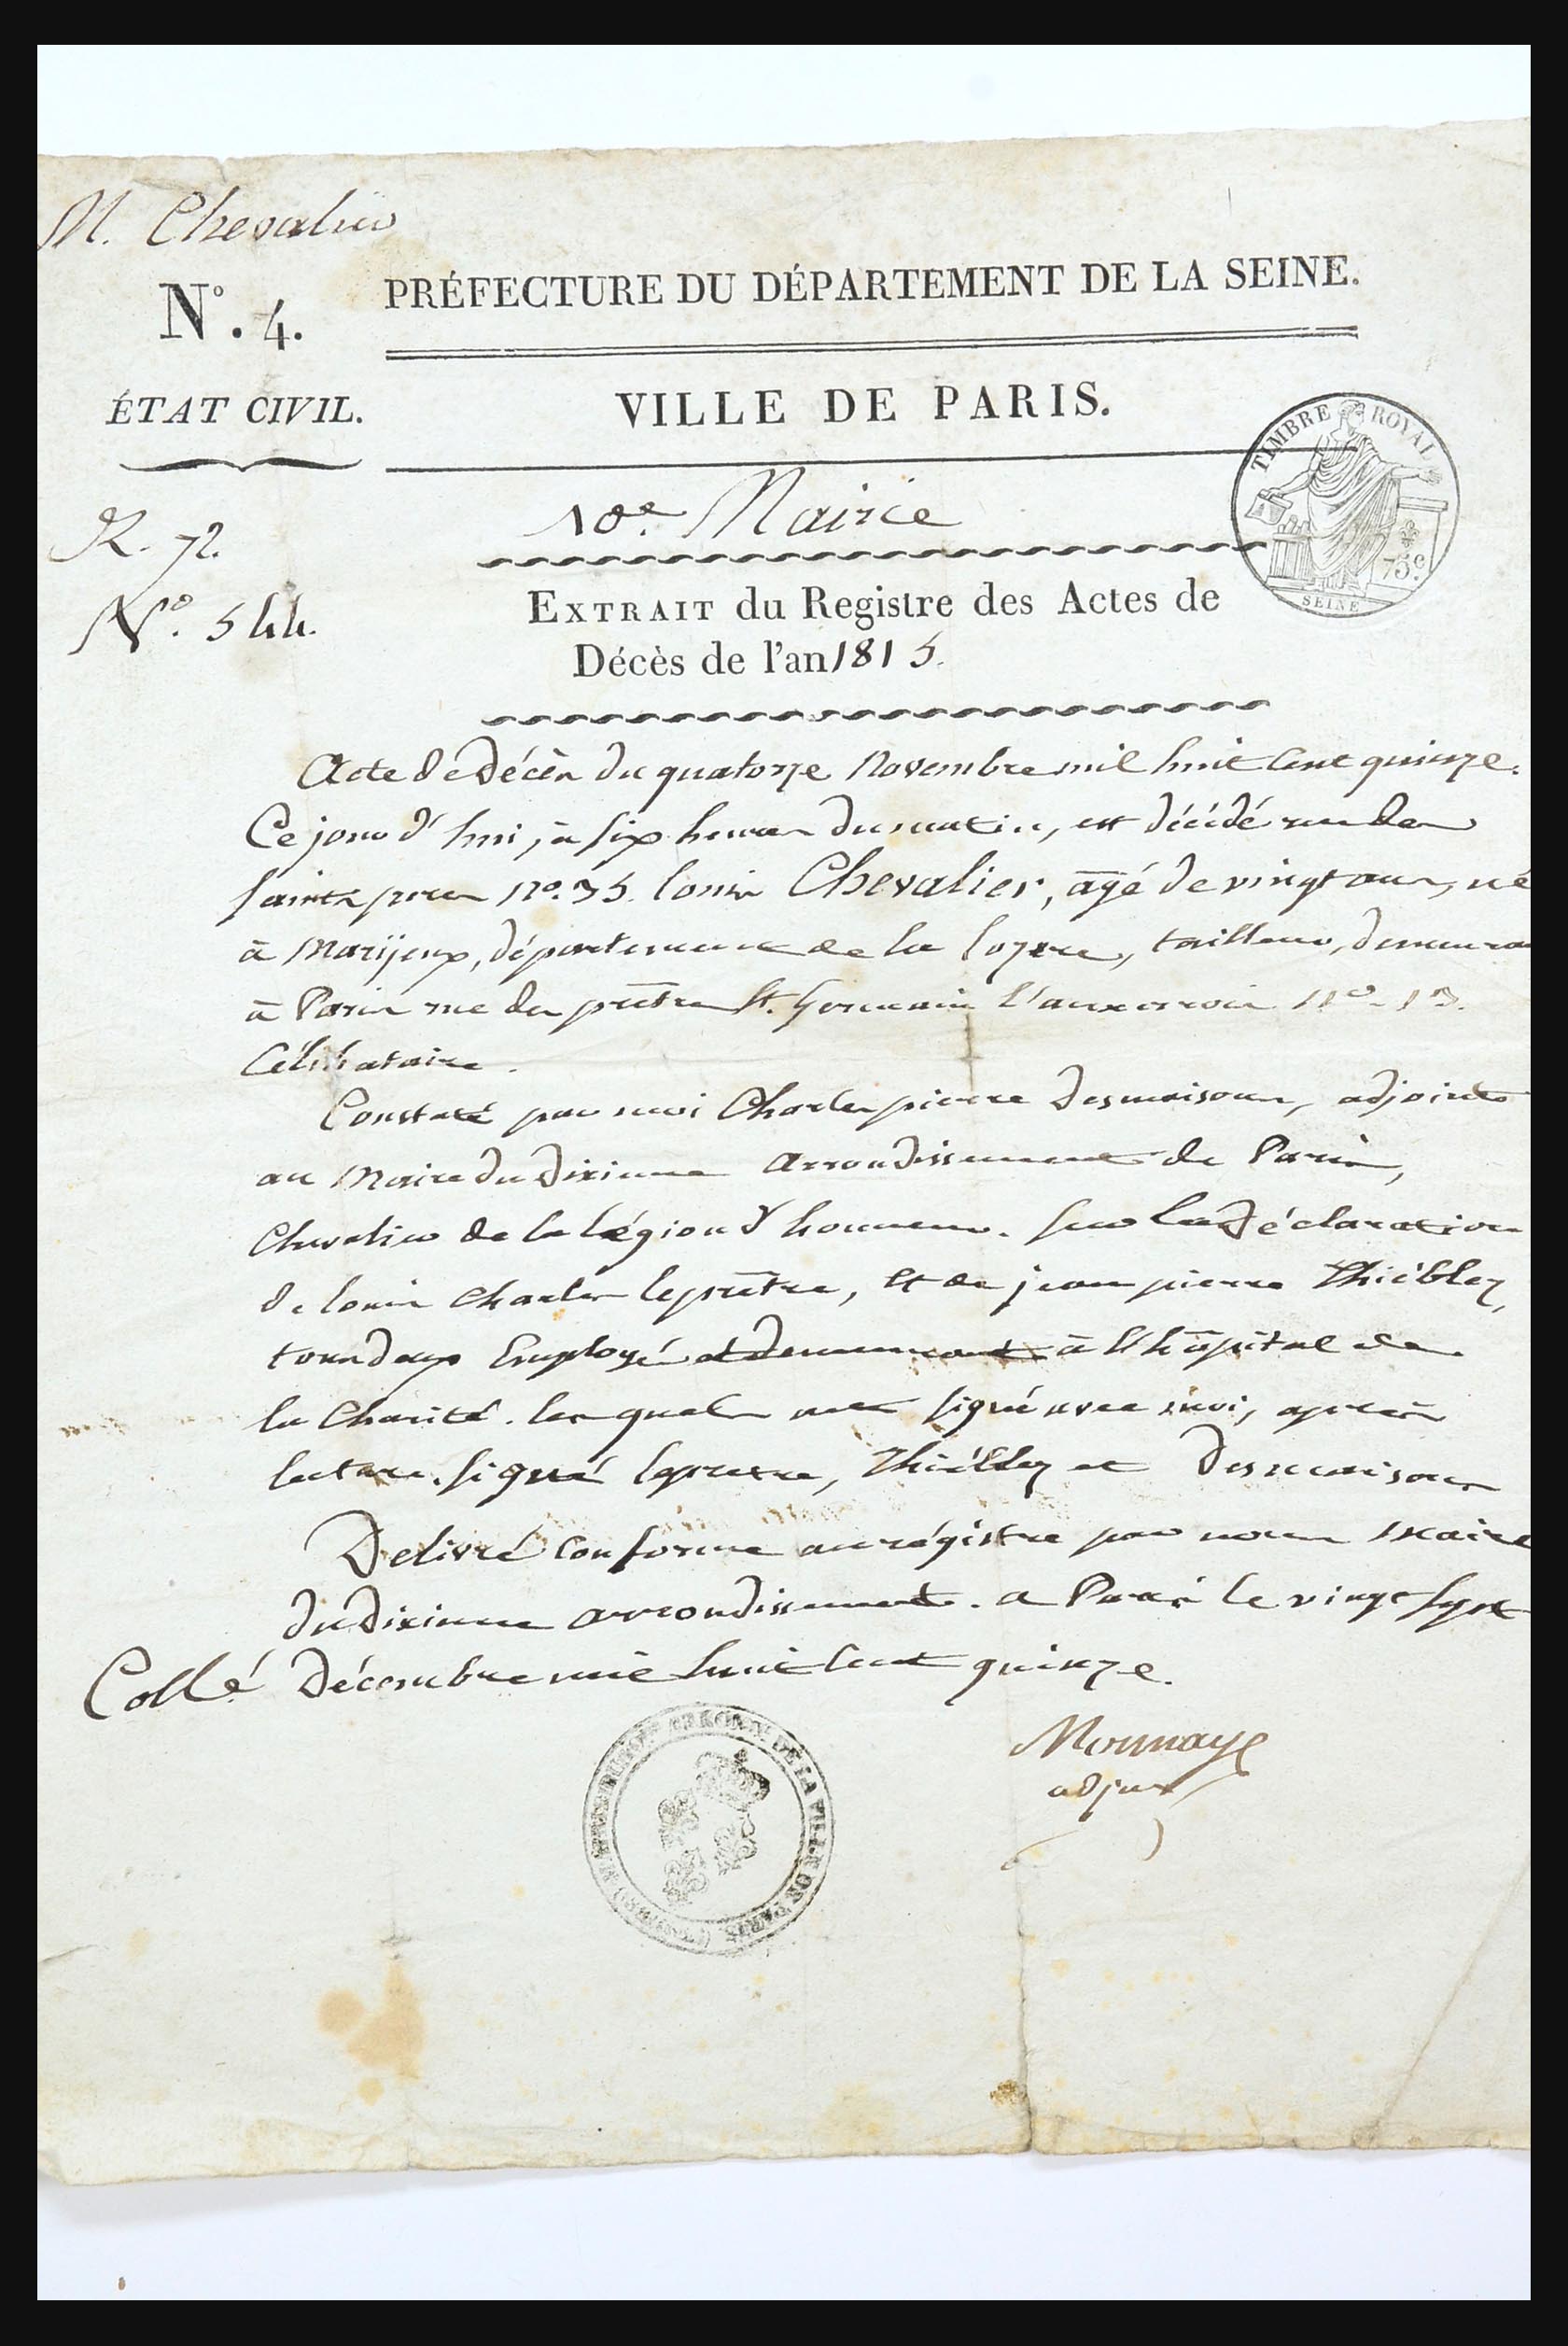 M. Chevalier
N°. 4.
PRÉFECTURE DU DÉPARTEMENT DE LA SEINE.
ÉTAT CIVIL.
VILLE DE PARIS.
TIMBRE ROYAL
75c.
SEINE
10e. Mairie
R. 72.
N°. 544.
EXTRAIT du Registre des Actes de
Décès de l'an 1815.
Acte de Décès du quatorze Novembre mil huit Cent quinze.
Ce jour d'hui, à six heures du matin, est décédé rue des
Saints peres N°. 35. Louis Chevalier, âgé de vingt ans, né
à Marijeux, département de la Lozere, tailleur, demeuran
à Paris rue des prêtres St. Germain l'auxerrois N°. 13.
Célibataire.
Constaté par moi Charles pierre Desmaisons, adjoint
au Maire du Dixieme Arrondissement de Paris,
Chevalier de la Légion d'honneur. Sur la Déclaration
de Louis Charles leprêtre, Et de jean pierre Thiébley,
tous deux Employés et demeurant à l'hôpital de
la Charité. lesquels ont signé avec moi, après
lecture. Signé leprêtre, Thiébley et Desmaisons
Delivré Conforme au régistre par nous Maire
du Dixieme arrondissement. a Paris le vingt Sept
Collé Décembre mil huit Cent quinze.
DE LA VILLE DE PARIS
Monnaye
adjoint